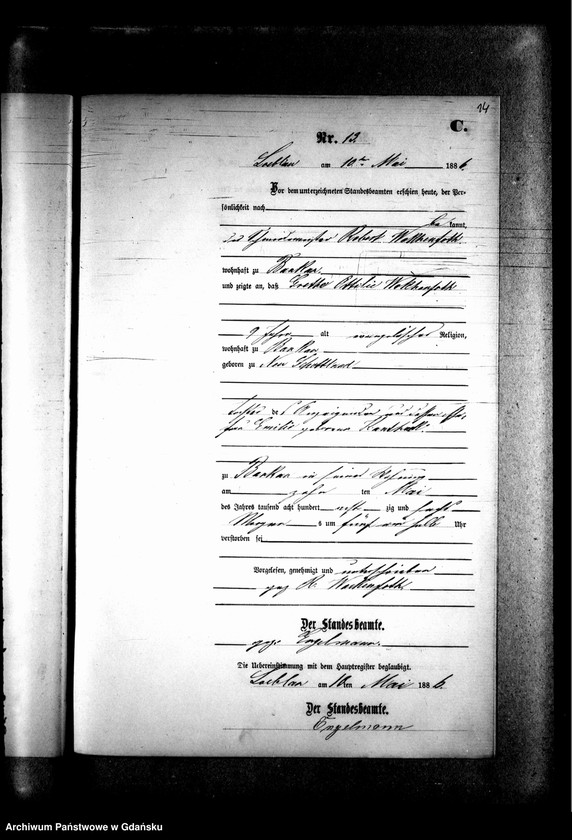 14
C.
Nr. 12
am 10ten Mai 1886.
Vor dem unterzeichneten Standesbeamten erschien heute, der Per-
sönlichkeit nach
be kannt,
der Robert
wohnhaft zu Bankau
und zeigte an, daß Grethe Ottilie
9 Jahre alt evangelischer Religion,
wohnhaft zu Bankau
geboren zu Neu
Tochter des Anzeigenden und dessen Ehe-
frau Emilie geborene
zu Bankau in seiner Wohnung
am zehn ten Mai
des Jahres tausend acht hundert acht zig und sechs
Morgen s um fünf ein halb Uhr
verstorben sei
Vorgelesen, genehmigt und unterschrieben
gez R.
Der Standesbeamte.
gez. Engelmann.
Die Uebereinstimmung mit dem Hauptregister beglaubigt.
am 10ten Mai 1886.
Der Standesbeamte.
Engelmann
Archiwum Państwowe w Gdańsku